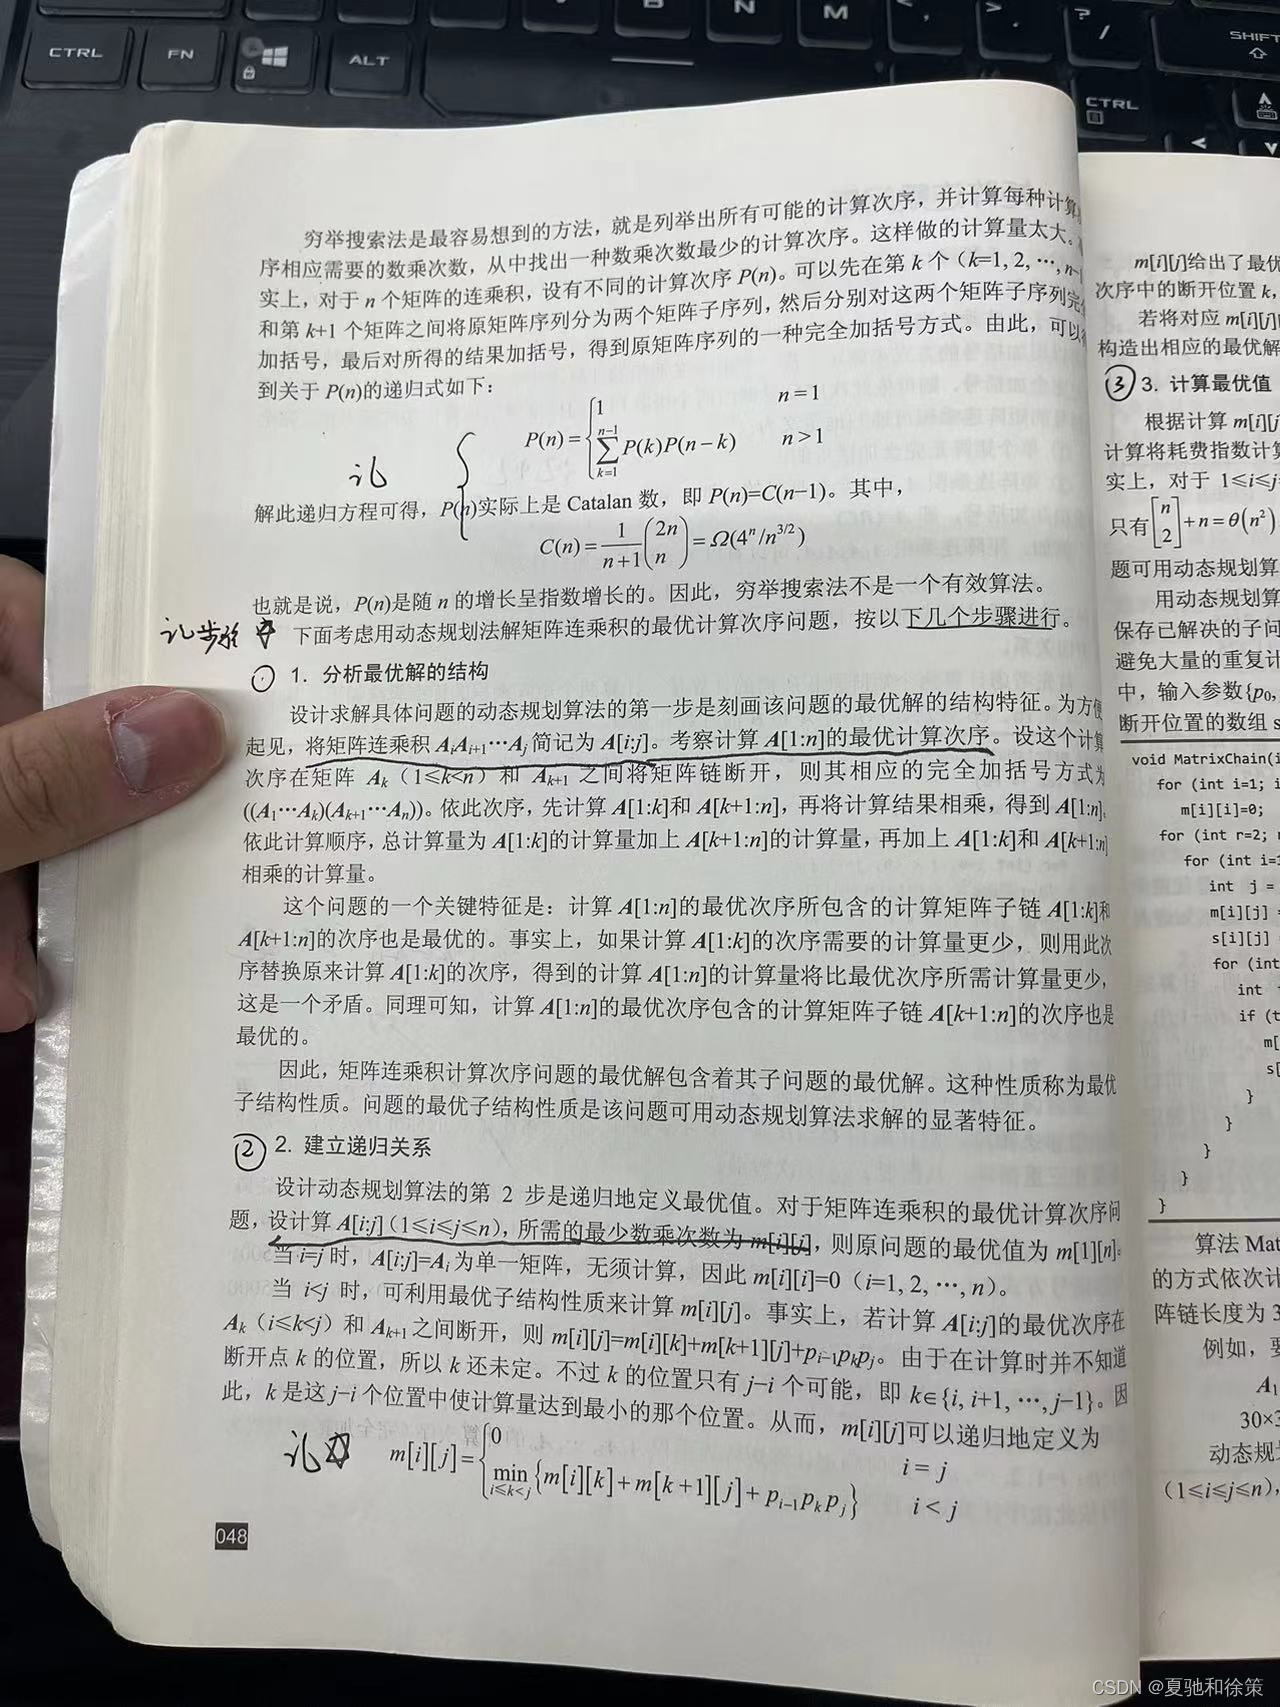 CTRL
FN
ALT
B
N
M
SHIFT
CTRL
穷举搜索法是最容易想到的方法，就是列举出所有可能的计算次序，并计算每种计算
序相应需要的数乘次数，从中找出一种数乘次数最少的计算次序。这样做的计算量太大。
实上，对于 n 个矩阵的连乘积，设有不同的计算次序 P(n)。可以先在第 k 个（k=1, 2, …, n-1
和第 k+1 个矩阵之间将原矩阵序列分为两个矩阵子序列，然后分别对这两个矩阵子序列完全
加括号，最后对所得的结果加括号，得到原矩阵序列的一种完全加括号方式。由此，可以得
到关于 P(n)的递归式如下：
P(n) = { 1 n = 1
∑_{k=1}^{n-1} P(k)P(n-k) n > 1
记
解此递归方程可得，P(n)实际上是 Catalan 数，即 P(n)=C(n-1)。其中，
C(n) = 1/(n+1) (2n n) = Ω(4^n/n^{3/2})
也就是说，P(n)是随 n 的增长呈指数增长的。因此，穷举搜索法不是一个有效算法。
记步骤
下面考虑用动态规划法解矩阵连乘积的最优计算次序问题，按以下几个步骤进行。
① 1. 分析最优解的结构
设计求解具体问题的动态规划算法的第一步是刻画该问题的最优解的结构特征。为方便
起见，将矩阵连乘积 AᵢAᵢ₊₁…Aⱼ 简记为 A[i:j]。考察计算 A[1:n]的最优计算次序。设这个计算
次序在矩阵 Aₖ（1≤k<n）和 Aₖ₊₁ 之间将矩阵链断开，则其相应的完全加括号方式为
((A₁…Aₖ)(Aₖ₊₁…Aₙ))。依此次序，先计算 A[1:k]和 A[k+1:n]，再将计算结果相乘，得到 A[1:n]。
依此计算顺序，总计算量为 A[1:k]的计算量加上 A[k+1:n]的计算量，再加上 A[1:k]和 A[k+1:n]
相乘的计算量。
这个问题的一个关键特征是：计算 A[1:n]的最优次序所包含的计算矩阵子链 A[1:k]和
A[k+1:n]的次序也是最优的。事实上，如果计算 A[1:k]的次序需要的计算量更少，则用此次
序替换原来计算 A[1:k]的次序，得到的计算 A[1:n]的计算量将比最优次序所需计算量更少，
这是一个矛盾。同理可知，计算 A[1:n]的最优次序包含的计算矩阵子链 A[k+1:n]的次序也是
最优的。
因此，矩阵连乘积计算次序问题的最优解包含着其子问题的最优解。这种性质称为最优
子结构性质。问题的最优子结构性质是该问题可用动态规划算法求解的显著特征。
② 2. 建立递归关系
设计动态规划算法的第 2 步是递归地定义最优值。对于矩阵连乘积的最优计算次序问
题，设计算 A[i:j]（1≤i≤j≤n），所需的最少数乘次数为 m[i][j]，则原问题的最优值为 m[1][n]。
当 i=j 时，A[i:j]=Aᵢ 为单一矩阵，无须计算，因此 m[i][i]=0（i=1, 2, …, n）。
当 i<j 时，可利用最优子结构性质来计算 m[i][j]。事实上，若计算 A[i:j]的最优次序在
Aₖ（i≤k<j）和 Aₖ₊₁ 之间断开，则 m[i][j]=m[i][k]+m[k+1][j]+pᵢ₋₁pₖpⱼ。由于在计算时并不知道
断开点 k 的位置，所以 k 还未定。不过 k 的位置只有 j-i 个可能，即 k∈{i, i+1, …, j-1}。因
此，k 是这 j-i 个位置中使计算量达到最小的那个位置。从而，m[i][j]可以递归地定义为
记
m[i][j] = { 0 i = j
min_{i≤k<j} {m[i][k]+m[k+1][j]+pᵢ₋₁pₖpⱼ} i < j
048
m[i][j]给出了最优
次序中的断开位置 k，
若将对应 m[i][j]
构造出相应的最优解
③ 3. 计算最优值
根据计算 m[i][j
计算将耗费指数计算
实上，对于 1≤i≤j
只有 [n 2] + n = θ(n²)
题可用动态规划算
用动态规划算
保存已解决的子问
避免大量的重复计
中，输入参数{p₀,
断开位置的数组 s
void MatrixChain(i
for (int i=1; i
m[i][i]=0;
for (int r=2;
for (int i=1
int j =
m[i][j] =
s[i][j] =
for (int
int
if (t
m[
s[
}
}
}
}
}
算法 Mat
的方式依次计
阵链长度为 3
例如，要
A₁
30×3
动态规划
（1≤i≤j≤n），
CSDN @夏驰和徐策